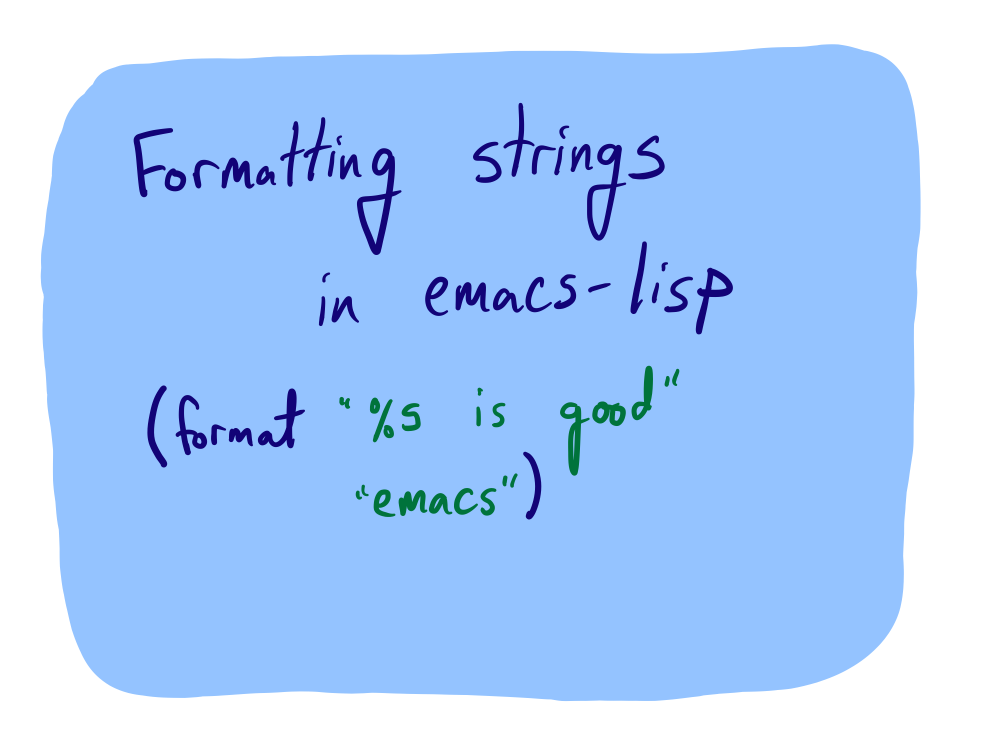 Formatting strings
in emacs-lisp
(format "%s is good"
"emacs")